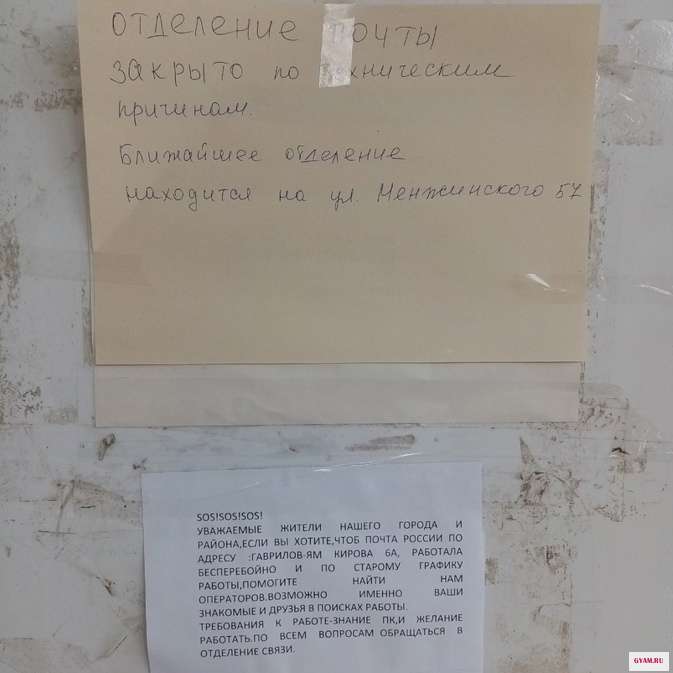 ОТДЕЛЕНИЕ ПОЧТЫ
ЗАКРЫТО по техническим
причинам.
Ближайшее отделение
находится на ул. Менжинского 57
SOS!SOS!SOS!
УВАЖАЕМЫЕ ЖИТЕЛИ НАШЕГО ГОРОДА И
РАЙОНА,ЕСЛИ ВЫ ХОТИТЕ,ЧТОБ ПОЧТА РОССИИ ПО
АДРЕСУ :ГАВРИЛОВ-ЯМ КИРОВА 6А, РАБОТАЛА
БЕСПЕРЕБОЙНО И ПО СТАРОМУ ГРАФИКУ
РАБОТЫ,ПОМОГИТЕ НАЙТИ НАМ
ОПЕРАТОРОВ.ВОЗМОЖНО ИМЕННО ВАШИ
ЗНАКОМЫЕ И ДРУЗЬЯ В ПОИСКАХ РАБОТЫ.
ТРЕБОВАНИЯ К РАБОТЕ-ЗНАНИЕ ПК,И ЖЕЛАНИЕ
РАБОТАТЬ.ПО ВСЕМ ВОПРОСАМ ОБРАЩАТЬСЯ В
ОТДЕЛЕНИЕ СВЯЗИ.
GYAM.RU